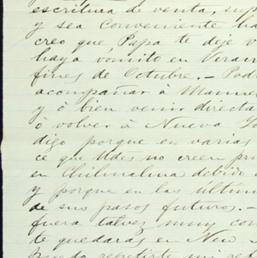 escritura de venta, sup
y sea conveniente ha
creo que Papa te deje v
haya vomito en Veracr
fines de Octubre. - Pod
acompañar á Manue
y ó bien venir directa
ó volver á Nueva Yo
digo porque en varias
ce que Udes no creen pr
en Chilmalma debido
y porque en las ultim
de sus pasos futuros. -
fuera talvez muy con
te quedaras en New